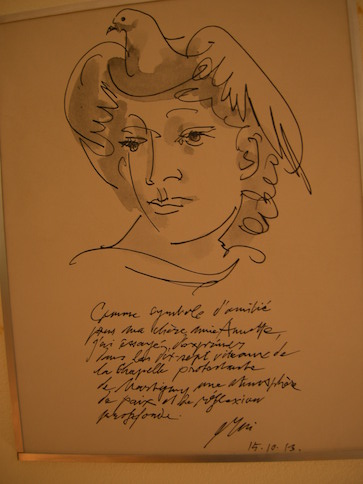 Comme symbole d'amitié
pour ma chère amie Annette,
j'ai essayé d'exprimer
dans les dix-sept vitraux de
la chapelle protestante
de Martigny une atmosphère
de paix et de réflexion
profonde.
15.10.13.